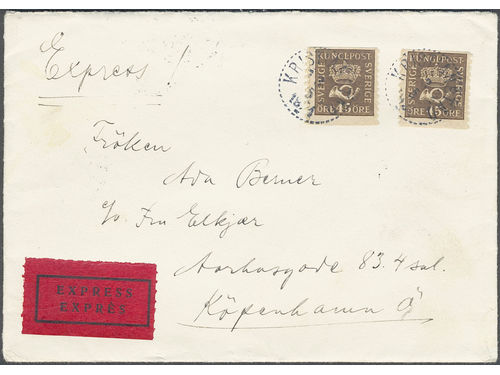 Express!
KUNGL.POST
SVERIGE SVERIGE
ÖRE 45 ÖRE
KUNGL.POST
SVERIGE SVERIGE
ÖRE 45 ÖRE
Fröken
Ada Berner
c/o Fru Elkjær
Aarhusgade 83. 4 sal.
Köpenhamn Ö
EXPRESS
EXPRÈS